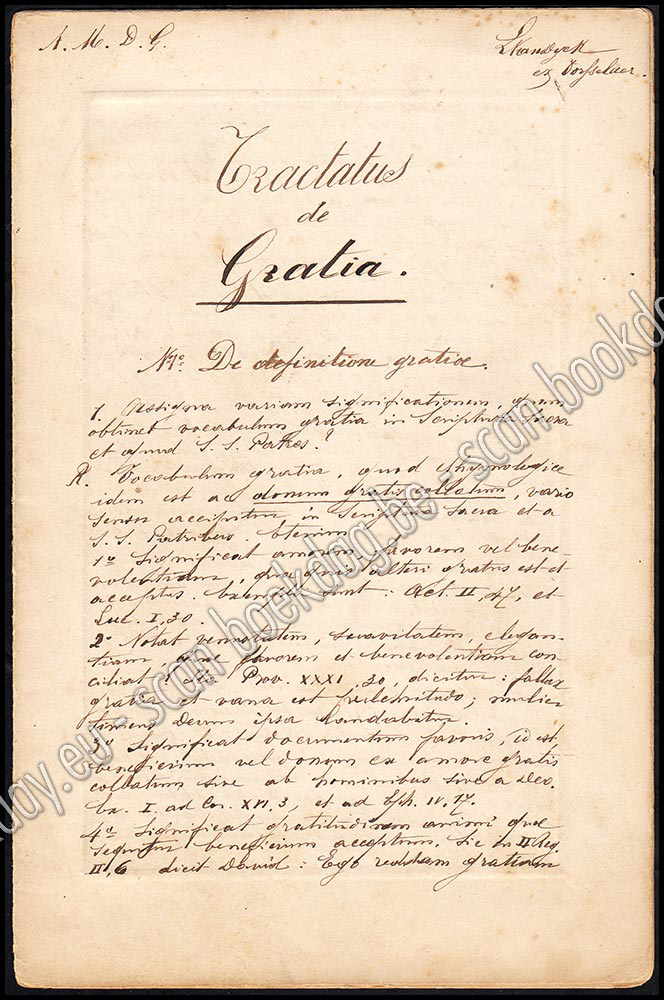 A. M. D. G.
ex Vorsselaer.
Tractatus
de
Gratia.
N 1º. De definitione gratiæ.
1. Assigna variam significationem, quam
obtinet vocabulum gratia in Scriptura Sacra
et apud S. S. Patres?
R. Vocabulum gratia, quod ethymologice
idem est ac donum gratis collatum, vario
sensu accipitur in Scriptura Sacra et a
S. S. Patribus.
1º Significat amorem, favorem vel bene-
volentiam, qua quis alteri gratus est et
acceptus. Exempla sunt: Act. II, 47, et
Luc. I, 30.
2º Notat venustatem, suavitatem, elegan-
tiam, quæ favorem et benevolentiam con-
ciliat. Ita Prov. XXXI, 30, dicitur: fallax
gratia et vana est pulchritudo; mulier
timens Deum ipsa laudabitur.
3º Significat documentum favoris, id est
beneficium vel donum ex amore gratis
collatum sive ab hominibus sive a Deo.
Ex. I. ad Cor. XVI, 3, et ad Eph. IV, 17.
4º Significat gratitudinem animi quæ
sequitur beneficium acceptum. Sic in II Reg.
II, 6 dicit David: Ego reddam gratiam
day.eu - scan bookdag.be - scan bookda